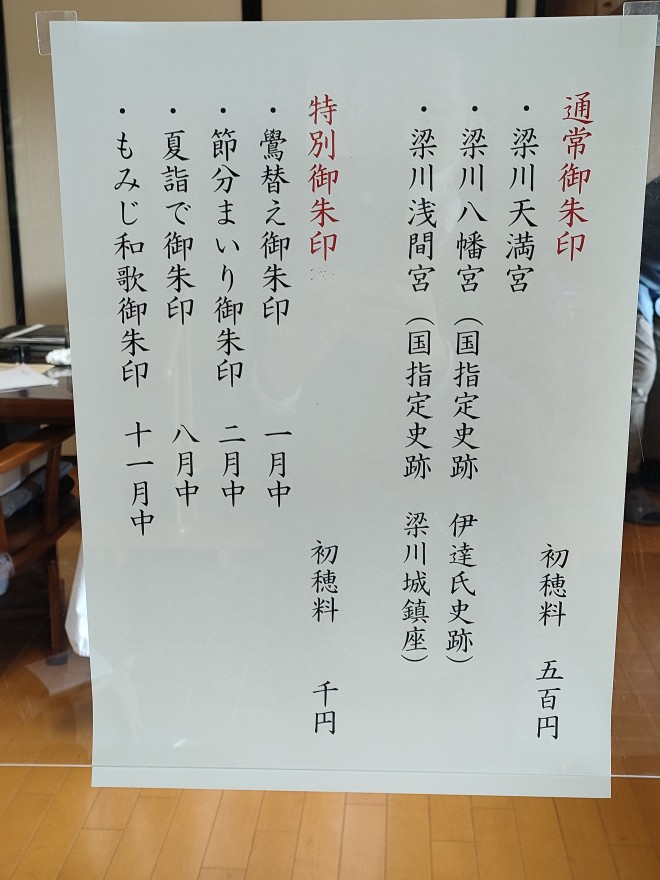 通常御朱印
・梁川天満宮
初穂料 五百円
・梁川八幡宮(国指定史跡 伊達氏史跡)
・梁川浅間宮(国指定史跡 梁川城鎮座)
特別御朱印
初穂料 千円
・鷽替え御朱印 一月中
・節分まいり御朱印 二月中
・夏詣で御朱印 八月中
・もみじ和歌御朱印 十一月中